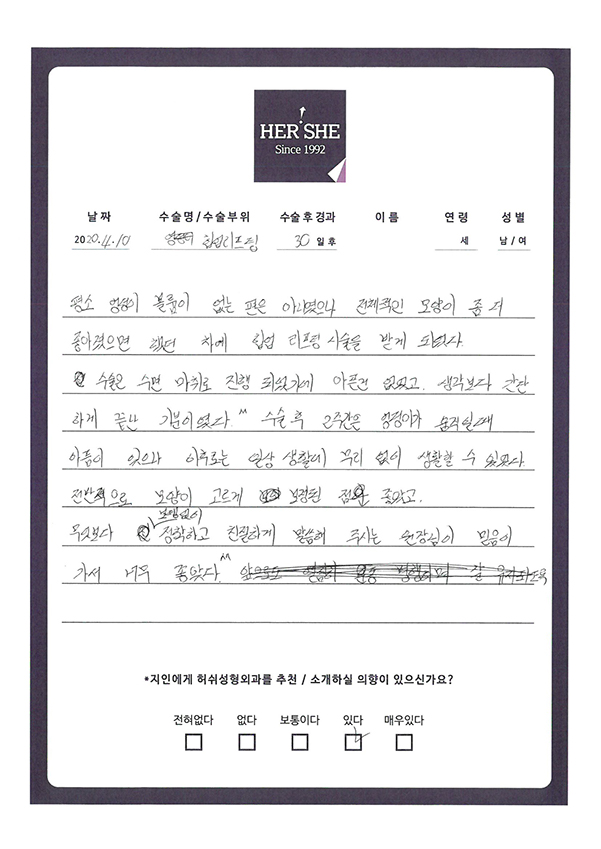 HER SHE
Since 1992
날 짜 수술명 / 수술부위 수술 후 경과 이 름 연 령 성 별
2020.4.10 힙업리프팅 30 일 후 세 남 / 여
평소 엉덩이 볼륨이 없는 편은 아니였으나 전체적인 모양이 좀 더
좋아졌으면 했던 차에 힙업 리프팅 시술을 받게 되었다.
수술은 수면 마취로 진행 되었기에 아픈건 없었고. 생각보다 간단
하게 끝난 기분이였다.^^ 수술 후 2주간은 엉덩이가 움직일때
아픔이 있으나 이후로는 일상 생활에 무리 없이 생활할 수 있었다.
전반적으로 모양이 고르게 보정된 점은 좋았고.
무엇보다 꾸밈없이 정확하고 친절하게 말씀해 주시는 원장님이 믿음이
가서 너무 좋았다.^^
*지인에게 허쉬성형외과를 추천 / 소개하실 의향이 있으신가요?
전혀없다 없다 보통이다 있다 매우있다